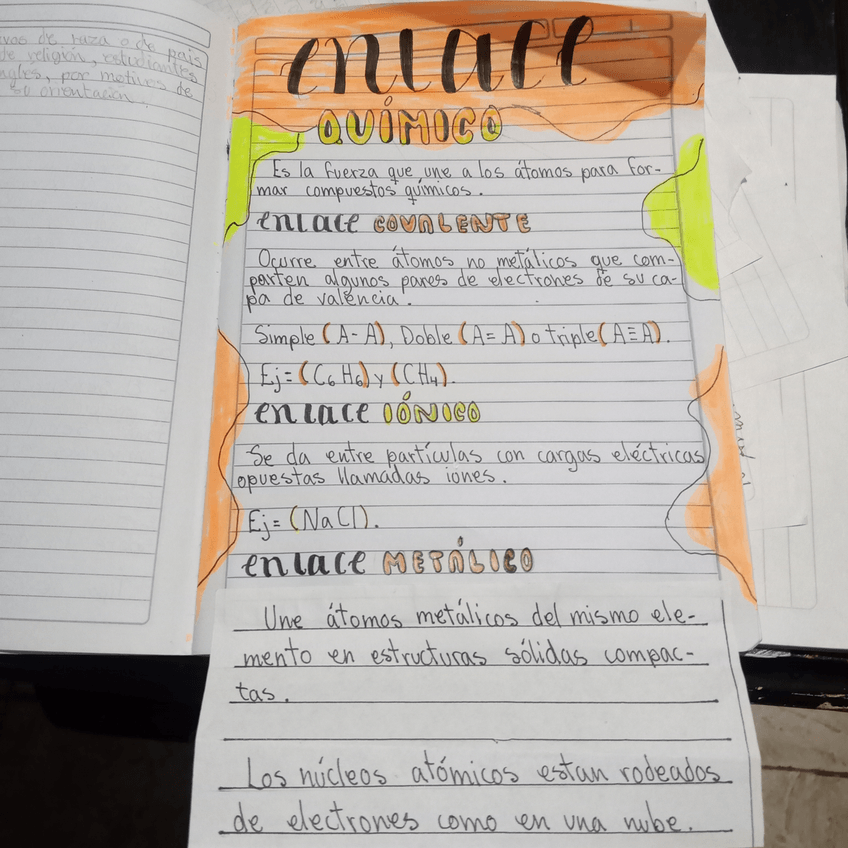 vos de raza o de pais
de religión, estudiantes
por motivos de
su orientación.
enlace
QUÍMICO
Es la fuerza que une a los átomos para for-
mar compuestos químicos.
enlace COVALENTE
Ocurre entre átomos no metálicos que com-
parten algunos pares de electrones de su ca-
pa de valencia.
Simple (A-A), Doble (A=A) o triple (A≡A).
Ej= (C₆H₆) y (CH₄).
enlace IÓNICO
Se da entre partículas con cargas eléctricas
opuestas llamadas iones.
Ej= (NaCl).
enlace METÁLICO
Une átomos metálicos del mismo ele-
mento en estructuras sólidas compac-
tas.
Los núcleos atómicos estan rodeados
de electrones como en una nube.